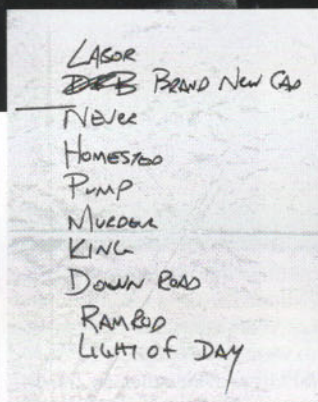 LABOR
BRAND NEW CAD
NEVER
HOMESTED
PUMP
MURDER
KING
DOWN ROAD
RAMROD
LIGHT OF DAY